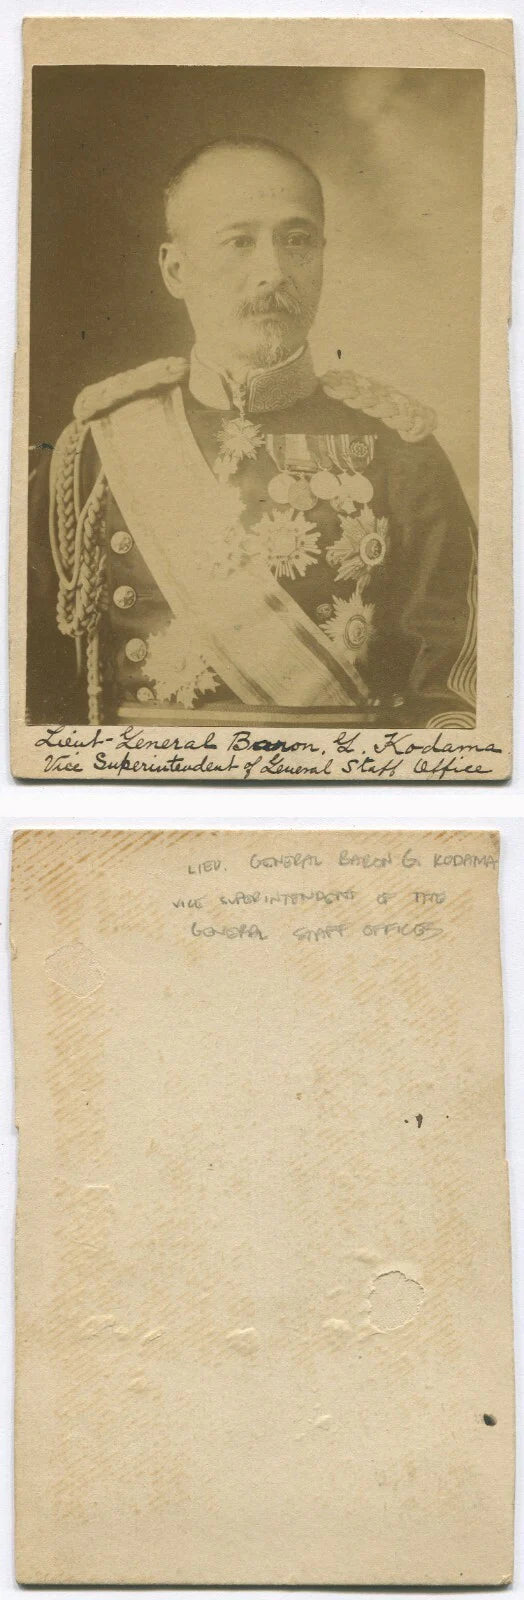 Lieut-General Baron. G. Kodama
Vice Superintendent of General Staff Office
LIEU. GENERAL BARON G. KODAMA
VICE SUPERINTENDENT OF THE
GENERAL STAFF OFFICES